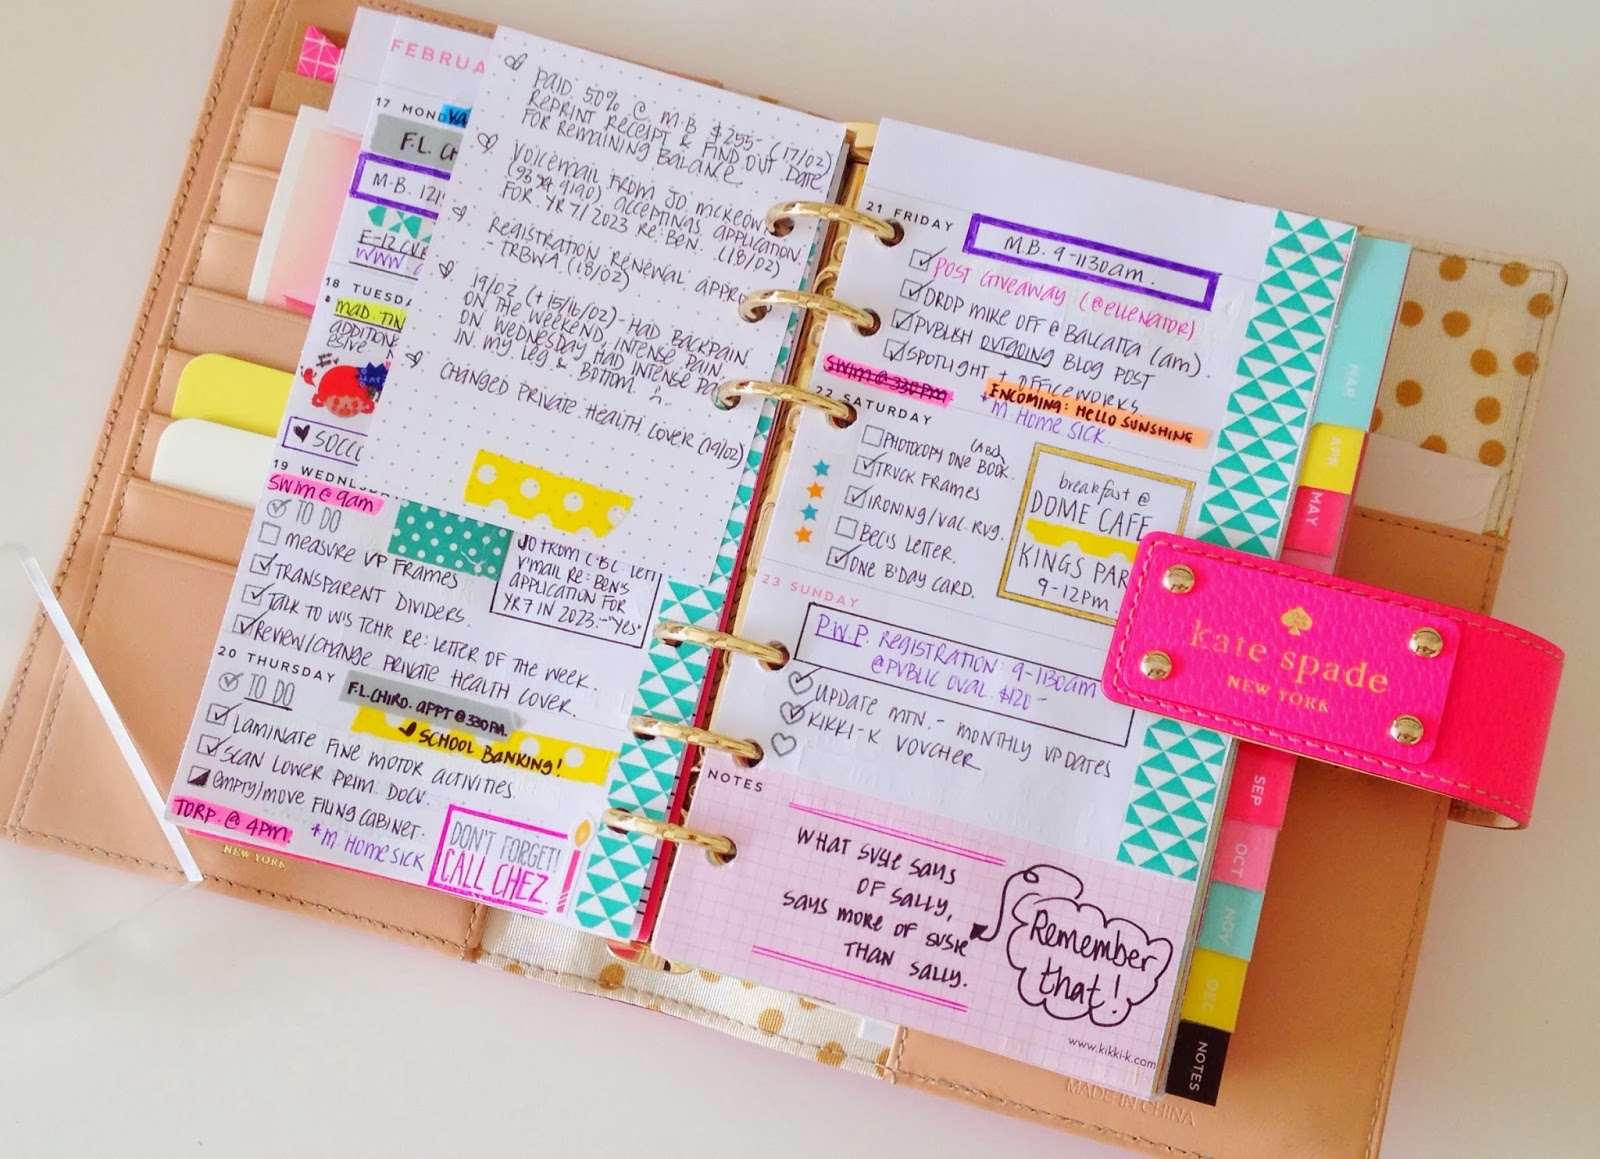 FEBRUA
17 MOND
F.L. CH
M.B. 12
E-12
WWW.
18 TUESDA
MAD. TIN
ADDITIONE
♥ SOCCE
19 WEDNESDA
SWIM @ 9am
TO DO
MEASURE VP FRAMES
TRANSPARENT DIVIDERS.
TALK TO W'S TCHR RE: LETTER OF THE WEEK.
REVIEW/CHANGE PRIVATE HEALTH COVER.
JO FROM C.B.C. LEFT
V'MAIL RE: BEN'S
APPLICATION FOR
YR 7 IN 2023.-"YES"
20 THURSDAY
F.L. CHIRO. APPT @ 330PM.
TO DO
♥ SCHOOL BANKING!
LAMINATE FINE MOTOR ACTIVITIES.
SCAN LOWER PRIM. DOCU.
EMPTY/MOVE FILING CABINET.
TORP. @ 4PM.
*M. HOME SICK
DON'T FORGET!
CALL CHEZ.
NEW YORK
PAID. 50% @ M.B $255- (17/02)
REPRINT RECEIPT & FIND OUT DATE
FOR REMAINING BALANCE.
VOICEMAIL FROM JO MCKEOW
(9384 9190) ACCEPTING APPLICATION
FOR YR 7/2023 RE: BEN. (18/02)
REGISTRATION RENEWAL APPRO
- TRBWA. (18/02)
19/02 (+15/16/02) - HAD BACKPAIN
ON THE WEEKEND, INTENSE PAIN.
ON WEDNESDAY HAD INTENSE PA
IN MY LEG & BOTTOM
CHANGED PRIVATE HEALTH COVER (19/02)
21 FRIDAY
M.B. 9-1130am.
POST GIVEAWAY (@ELLENATOR)
DROP MIKE OFF @ BALCATTA (AM).
PUBLISH OUTGOING BLOG POST
SPOTLIGHT + OFFICEWORKS
SWIM @ 330PM
ENCOMING: HELLO SUNSHINE
*M. HOME SICK.
22 SATURDAY
PHOTOCOPY ONE BOOK.
TRUCK FRAMES
IRONING/VAC. RUG.
BEC'S LETTER.
ONE B'DAY CARD.
breakfast @
DOME CAFE
KINGS PAR
9-12PM.
23 SUNDAY
P.W.P. REGISTRATION: 9-1130am
@ PUBLIC OVAL. $120-
UPDATE MTN. - MONTHLY UPDATES
KIKKI-K VOUCHER
NOTES
WHAT SUSIE SAYS
OF SALLY,
SAYS MORE OF SUSIE
THAN SALLY.
Remember
that!
www.kikki-k.com
MAR
APR
MAY
kate spade
NEW YORK
SEP
OCT
NOV
DEC
NOTES
MADE IN CHINA